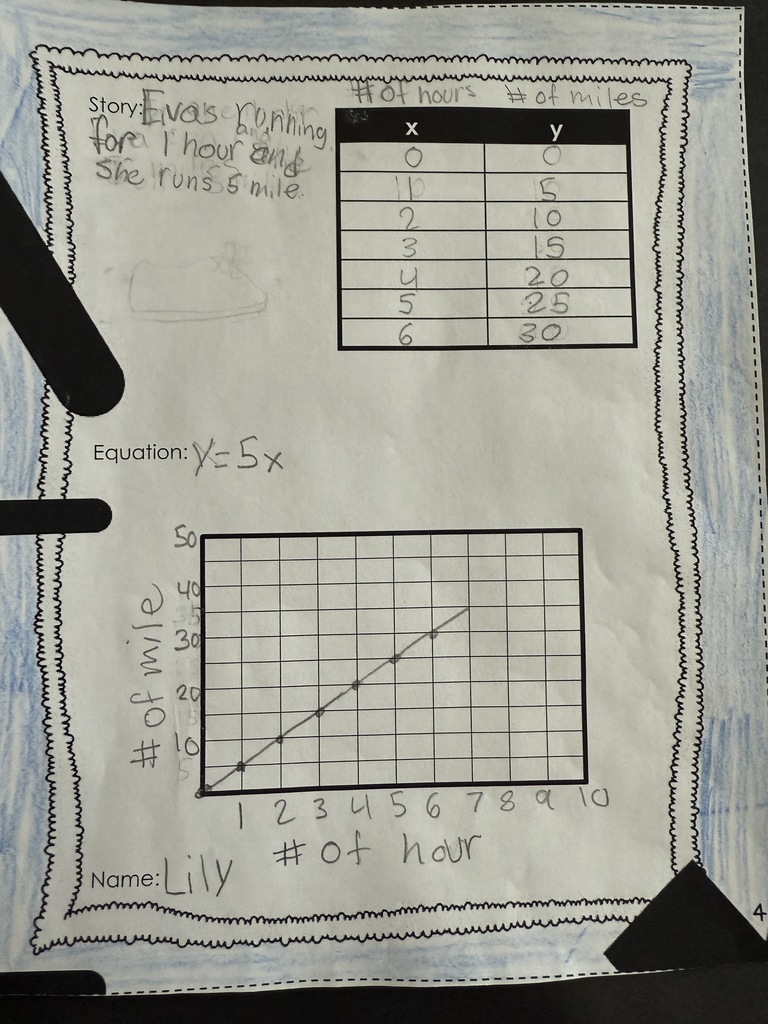 # of hours # of miles
Story: Evas running
for 1 hour and
she runs 5 mile.
x y
0 0
1 5
2 10
3 15
4 20
5 25
6 30
Equation: y=5x
50
40
30
20
10
# of mile
1 2 3 4 5 6 7 8 9 10
# of hour
Name: Lily
4